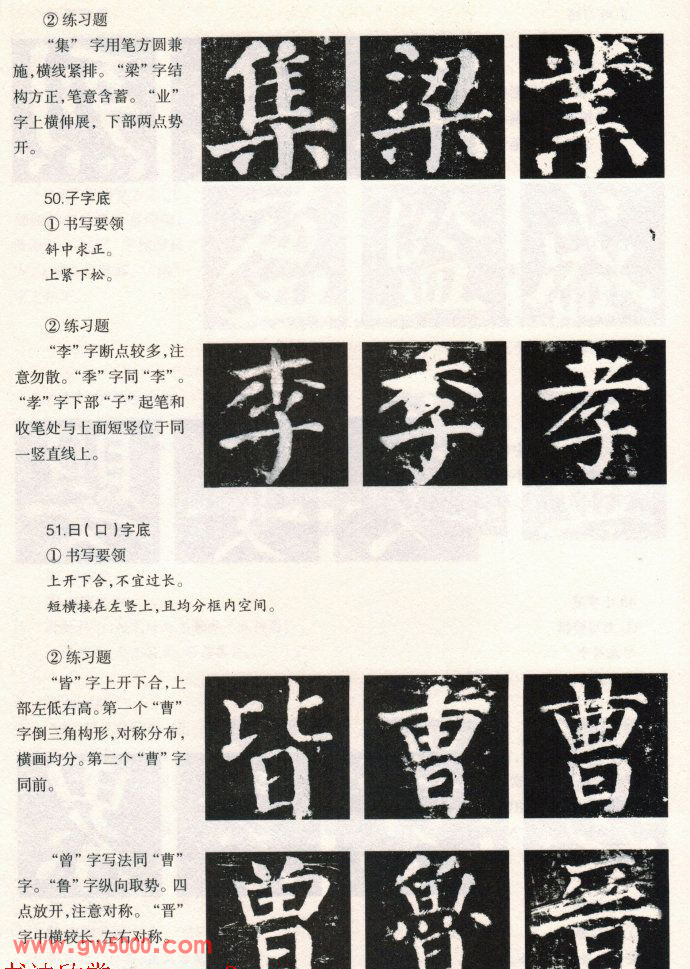 ② 练习题
“集” 字用笔方圆兼
施,横线紧排。“梁”字结
构方正,笔意含蓄。“业”
字上横伸展, 下部两点势
开。
集 梁 業
50.子字底
① 书写要领
斜中求正。
上紧下松。
② 练习题
“李”字断点较多,注
意勿散。“季”字同“李”。
“孝”字下部“子”起笔和
收笔处与上面短竖位于同
一竖直线上。
李 季 孝
51.日(口)字底
① 书写要领
上开下合,不宜过长。
短横接在左竖上,且均分框内空间。
② 练习题
“皆”字上开下合,上
部左低右高。第一个“曹”
字倒三角构形,对称分布,
横画均分。第二个“曹”字
同前。
皆 曹 曹
“曾”字写法同“曹”
字。“鲁”字纵向取势。四
点放开,注意对称。“晋”
字中横较长,左右对称。
曾 魯 晉
www.gw5000.com